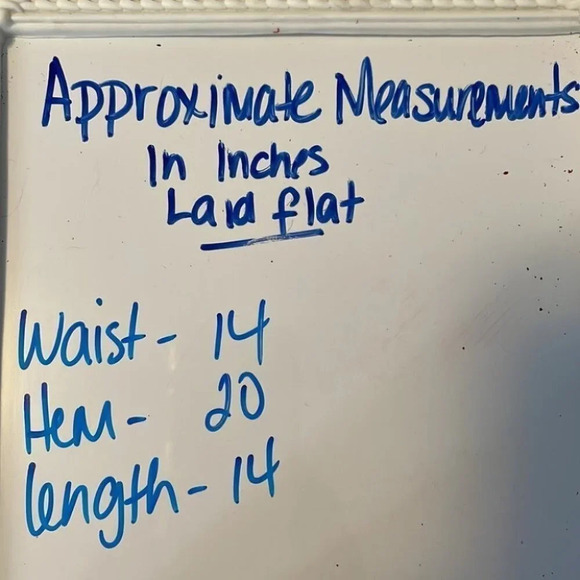 Approximate Measurements
In Inches
Laid flat
Waist - 14
Hem - 20
length - 14